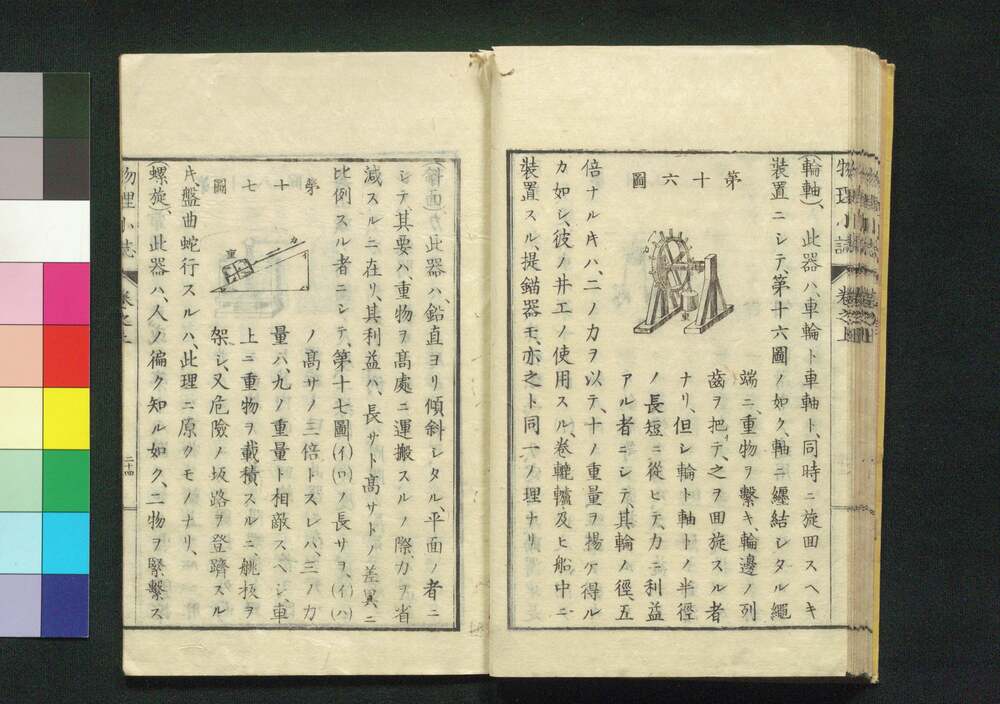 物理小誌
卷之上
(輪軸)、此器ハ車輪ト車軸ト、同時ニ旋囬スヘキ
装置ニシテ、第十六圖ノ如ク、軸ニ纒結シタル繩
端ニ、重物ヲ繋キ、輪邊ノ列
齒ヲ把テ、之ヲ囬旋スル者
ナリ、但シ輪ト軸トノ半徑
ノ長短ニ從ヒテ、力ニ利益
アル者ニシテ、其輪ノ徑、五
第十六圖
力
重
倍ナル𪜈ハ、二ノ力ヲ以テ、十ノ重量ヲ揚ケ得ル
カ如シ、彼ノ井工ノ使用スル、卷轆轤及ヒ船中ニ
装置スル、提錨器モ、亦之ト同一ノ理ナリ
(斜面)カ此器ハ、鉛直ヨリ傾斜シタル、平面ノ者ニ
シテ、其要ハ、重物ヲ高處ニ運搬スルノ際、力ヲ省
減スルニ在リ、其利益ハ、長サト高サトノ差異ニ
比例スル者ニシテ、第十七圖(イ)(ロ)ノ長サヲ、(イ)(ハ)
ノ髙サノ三倍トスレハ、三ノ力
量ハ、九ノ重量ト相敵スヘシ、車
上ニ重物ヲ載積スルニ、桃板ヲ
架シ、又危險ノ坂路ヲ登躋スル
第十七圖
力
重
イ
𪜈、盤曲蛇行スルハ、此理ニ原クモノナリ、
(螺旋)、此器ハ、人ノ徧ク知ル如ク、二物ヲ緊繋ス
物理小誌
卷之上
二十四